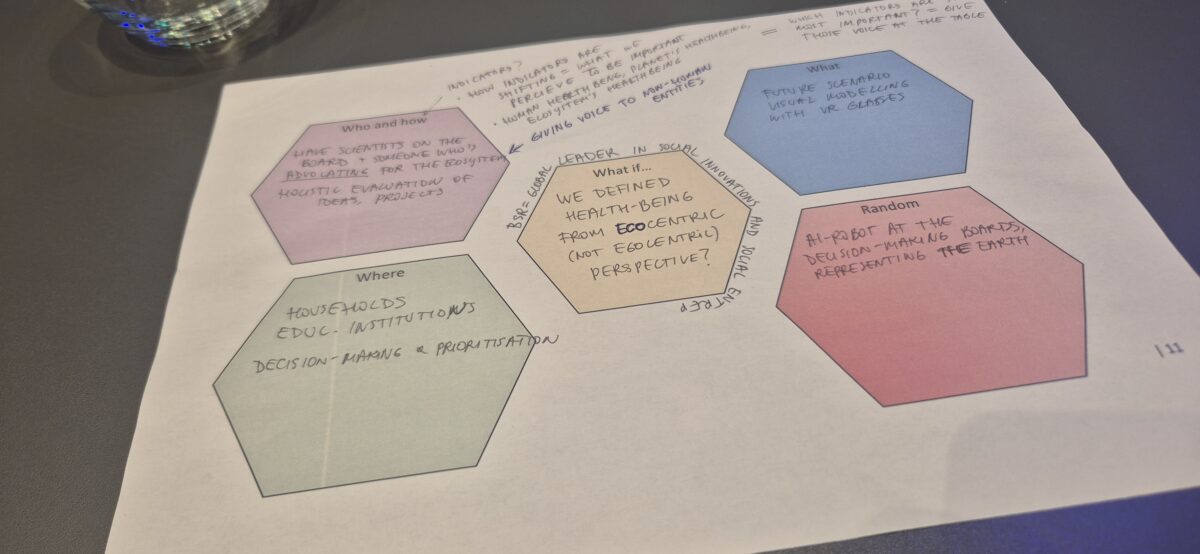 INDICATORS?
• HOW INDICATORS ARE
SHIFTING = WHAT WE
PERCIEVE TO BE IMPORTANT
• HUMAN HEALTHBEING, PLANET'S HEALTHBEING,
ECOSYSTEM'S HEALTHBEING
= WHICH INDICATORS ARE
MOST IMPORTANT? = GIVE
THOSE VOICE AT THE TABLE
GIVING VOICE TO NON-HUMAN
ENTITIES
Who and how
HAVE SCIENTISTS ON THE
BOARD + SOMEONE WHO'S
ADVOCATING FOR THE ECOSYSTEM
HOLISTIC EVALUATION OF
IDEAS, PROJECTS
What
FUTURE SCENARIO
VISUAL MODELLING
WITH VR GLASSES
BSR = GLOBAL LEADER IN SOCIAL INNOVATIONS AND SOCIAL ENTREP
What if...
WE DEFINED
HEALTH-BEING
FROM ECOCENTRIC
(NOT EGOCENTRIC)
PERSPECTIVE?
Random
AI-ROBOT AT THE
DECISION-MAKING BOARDS,
REPRESENTING THE EARTH
Where
HOUSEHOLDS
EDUC. INSTITUTIONS
DECISION-MAKING & PRIORITISATION
| 11